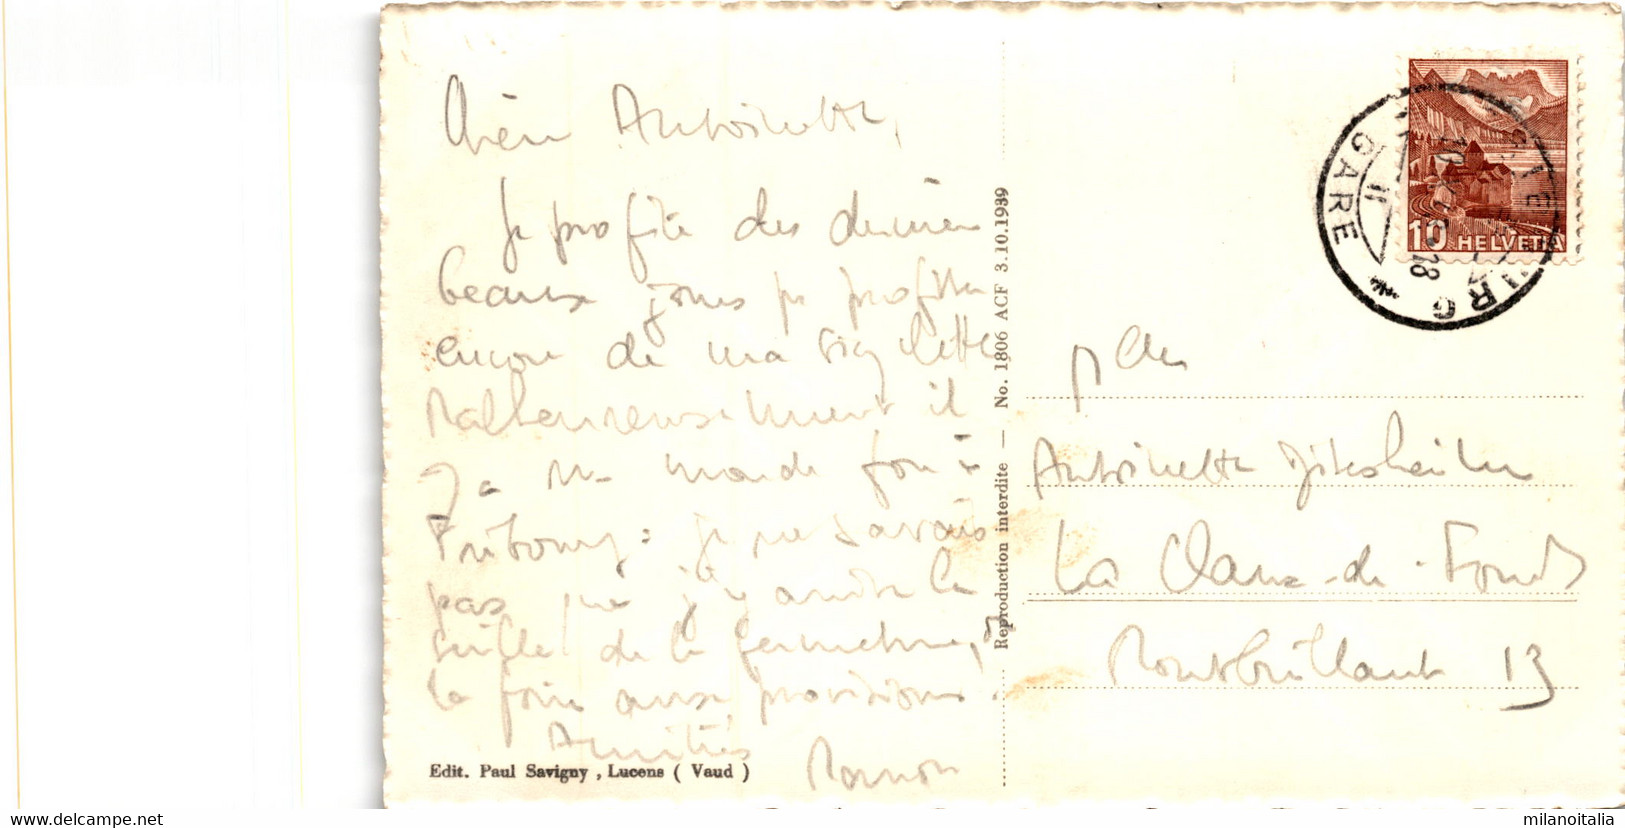 Chère Antoinette,
Je profite des derniers
beaux jours pr profiter
encore de ma bicyclette
Malheureusement il
y a un monde fou à
Fribourg: je ne savais
pas que j'y
de la fermeture,
la foire aux provisions.
Amitiés
Edit. Paul Savigny , Lucens ( Vaud )
Reproduction interdite — No. 1806 ACF 3.10.1939
10 HELVETIA
GARE
Antoinette
La Chaux-de-Fonds
Montbrillant 13
www.delcampe.net
milanoitalia